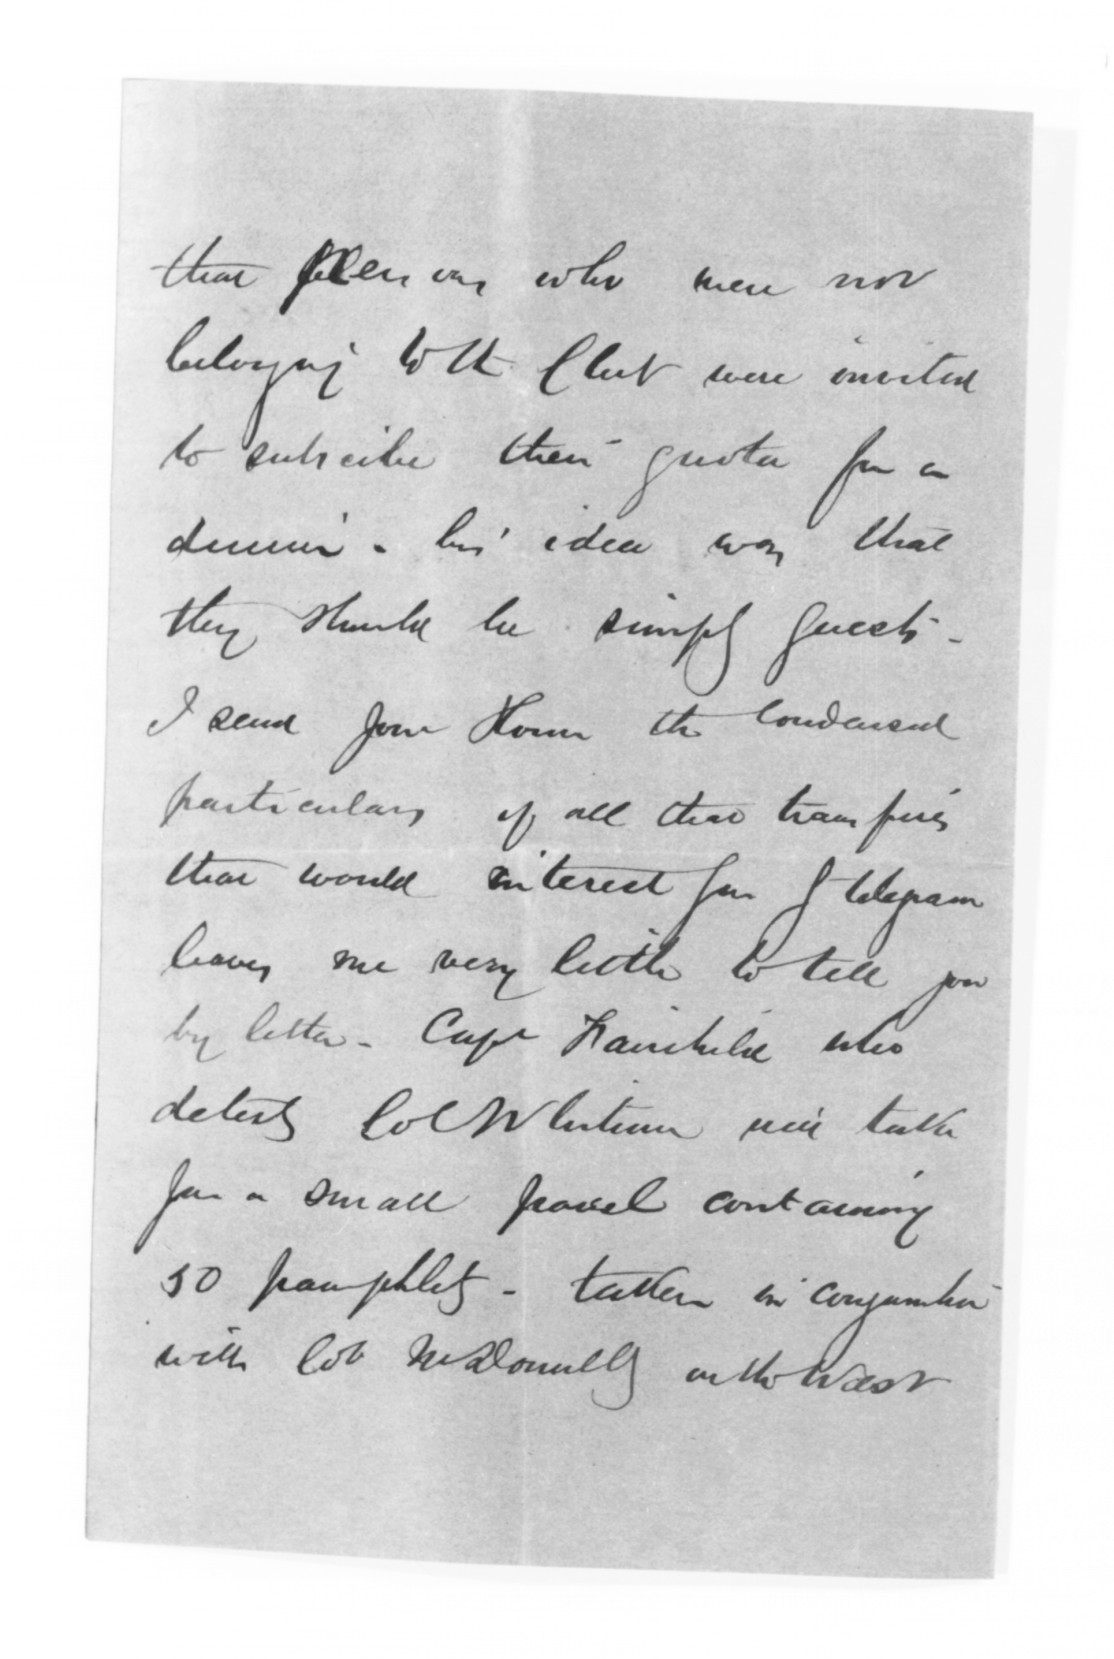 that persons who were not
belonging to the Club were invited
to subscribe their quota for a
dinner - his idea was that
they should be simply guests -
I send your Honor the condensed
particulars of all that transpires
that would interest you & telegram
leaves me very little to tell you
by letter - Capt Fairchild who
detests Col Whitmore will take
you a small parcel containing
50 pamphlets - taken in conjunction
with Col McDonnell's on the West